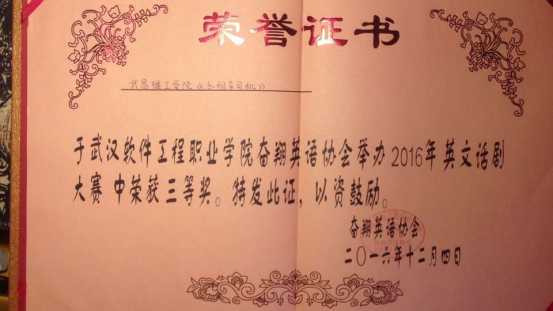 荣誉证书
武昌理工学院
于武汉软件工程职业学院奋翔英语协会举办2016年英文话剧
大赛 中荣获三等奖。特发此证，以资鼓励。
奋翔英语协会
二〇一六年十二月四日